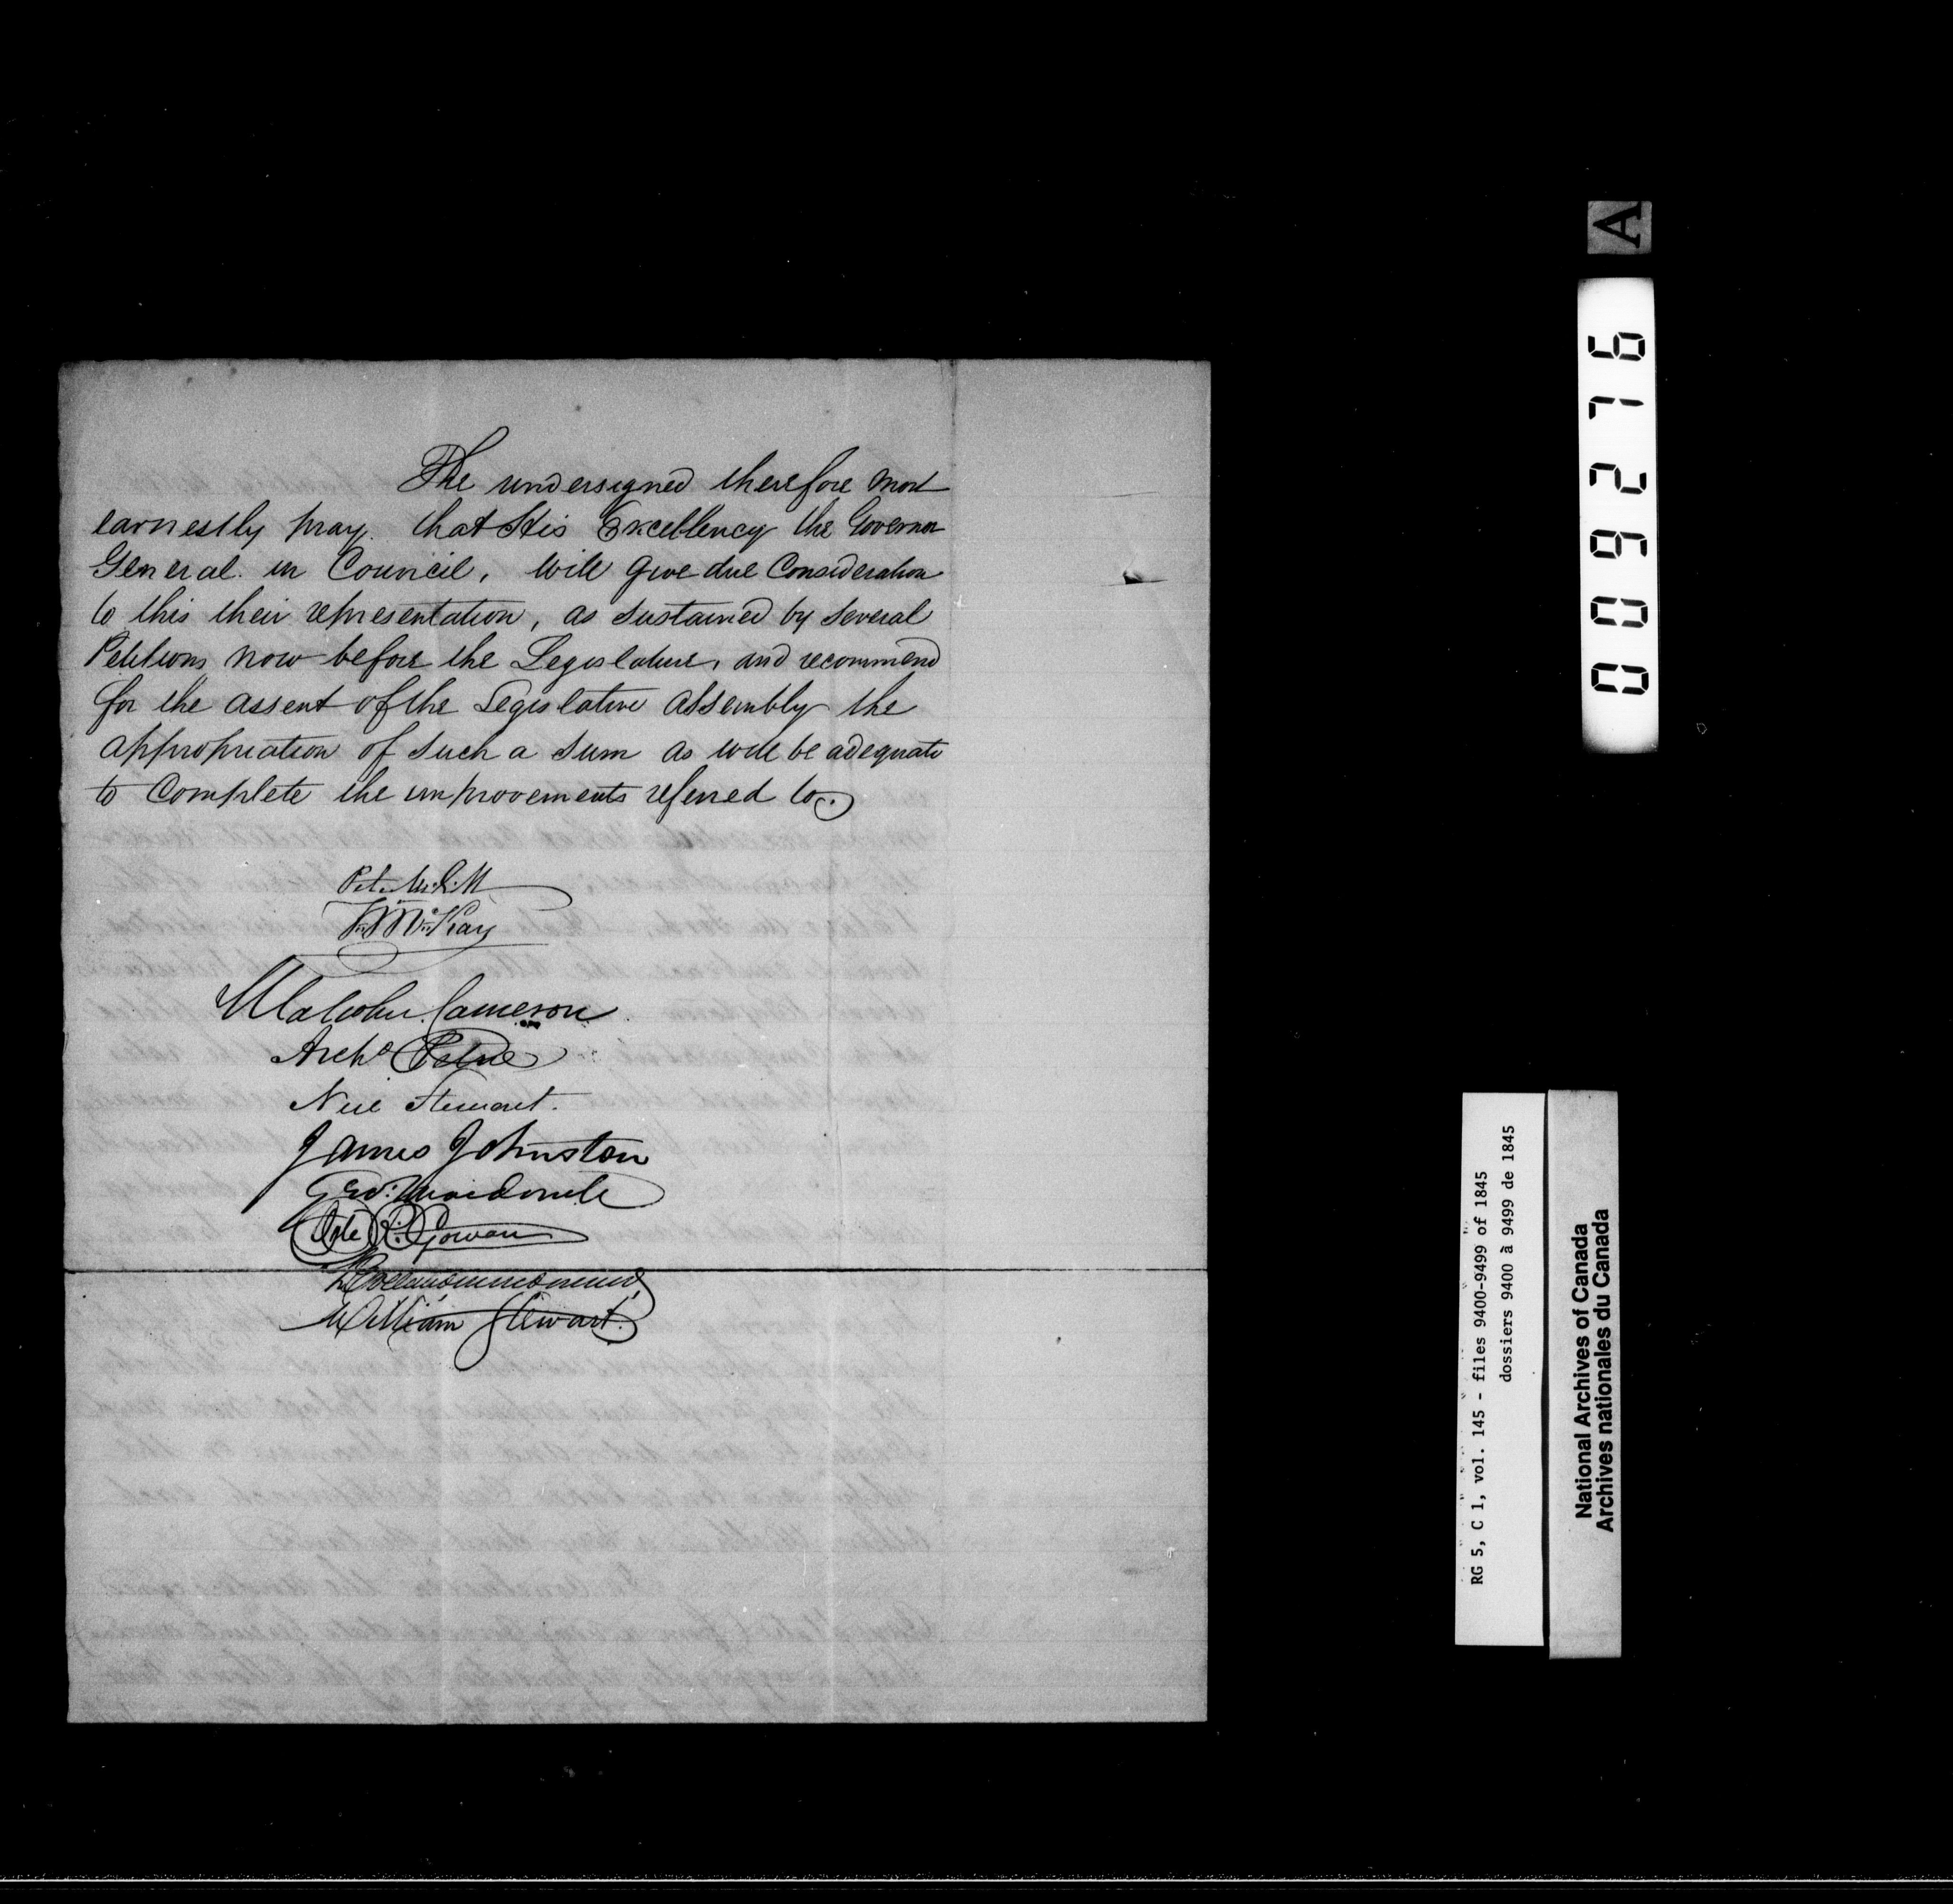 The undersigned therefore most
earnestly pray. that His Excellency the Governor
General. in Council, will give due Consideration
to this their representation, as sustained by several
Petitions now before the Legislature, and recommend
for the assent of the Legislative Assembly the
appropriation of such a sum as will be adequate
to Complete the improvements referred to.
Peter McGill
Malcolm Cameron
Archd Petrie
Neil Stewart.
James Johnston
Geo: Macdonell
Ogle R. Gowan
William Stewart.
A
009276
RG 5, C 1, vol. 145 - files 9400-9499 of 1845
dossiers 9400 à 9499 de 1845
National Archives of Canada
Archives nationales du Canada